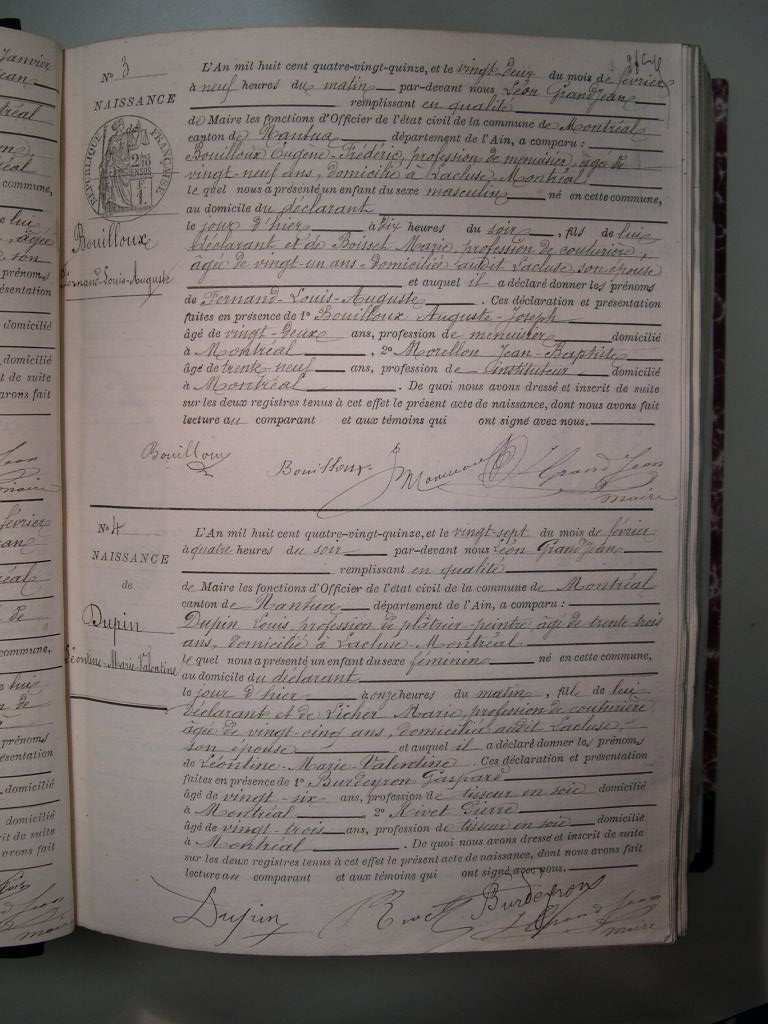 N° 3
NAISSANCE
RÉPUBLIQUE FRANÇAISE
Bouilloux
Fernand-Louis-Auguste
L'An mil huit cent quatre-vingt-quinze, et le vingt-deux du mois de février
à neuf heures du matin par-devant nous Léon Grandjean
remplissant en qualité
de Maire les fonctions d'Officier de l'état civil de la commune de Montréal
canton de Nantua département de l'Ain, a comparu :
Bouilloux Eugène-Frédéric, profession de menuisier, âgé de
vingt-neuf ans, domicilié à Lacluse Montréal
le quel nous a présenté un enfant du sexe masculin né en cette commune,
au domicile du déclarant
le jour d'hier à dix heures du soir, fils de lui
déclarant et de Boisset Marie, profession de couturière,
âgée de vingt-un ans, domiciliée audit Lacluse son épouse
et auquel il a déclaré donner les prénoms
de Fernand-Louis-Auguste. Ces déclaration et présentation
faites en présence de 1° Bouilloux Auguste-Joseph
âgé de vingt-deux ans, profession de menuisier domicilié
à Montréal, 2° Morellon Jean-Baptiste
âgé de trente-neuf ans, profession de instituteur domicilié
à Montréal. De quoi nous avons dressé et inscrit de suite
sur les deux registres tenus à cet effet le présent acte de naissance, dont nous avons fait
lecture au comparant et aux témoins qui ont signé avec nous.
Bouilloux Bouilloux Grand Jean
maire
N° 4
NAISSANCE
de
Dupin
Léontine-Marie-Valentine
L'An mil huit cent quatre-vingt-quinze, et le vingt-sept du mois de février
à quatre heures du soir par-devant nous Léon Grandjean
remplissant en qualité
de Maire les fonctions d'Officier de l'état civil de la commune de Montréal
canton de Nantua département de l'Ain, a comparu :
Dupin Louis, profession de plâtrier-peintre âgé de trente trois
ans, domicilié à Lacluse-Montréal
le quel nous a présenté un enfant du sexe féminin né en cette commune,
au domicile du déclarant
le jour d'hier à onze heures du matin, fille de lui
déclarant et de Marie, profession de couturière
âgée de vingt-cinq ans, domiciliée audit Lacluse
son épouse et auquel il a déclaré donner les prénoms
de Léontine-Marie-Valentine. Ces déclaration et présentation
faites en présence de 1° Burdeyron Gaspard
âgé de vingt-six ans, profession de tisseur en soie domicilié
à Montréal 2° Rivet Pierre
âgé de vingt-trois ans, profession de tisseur en soie domicilié
à Montréal. De quoi nous avons dressé et inscrit de suite
sur les deux registres tenus à cet effet le présent acte de naissance, dont nous avons fait
lecture au comparant et aux témoins qui ont signé avec nous.
Dupin Rivet Burdeyron Grand Jean
maire